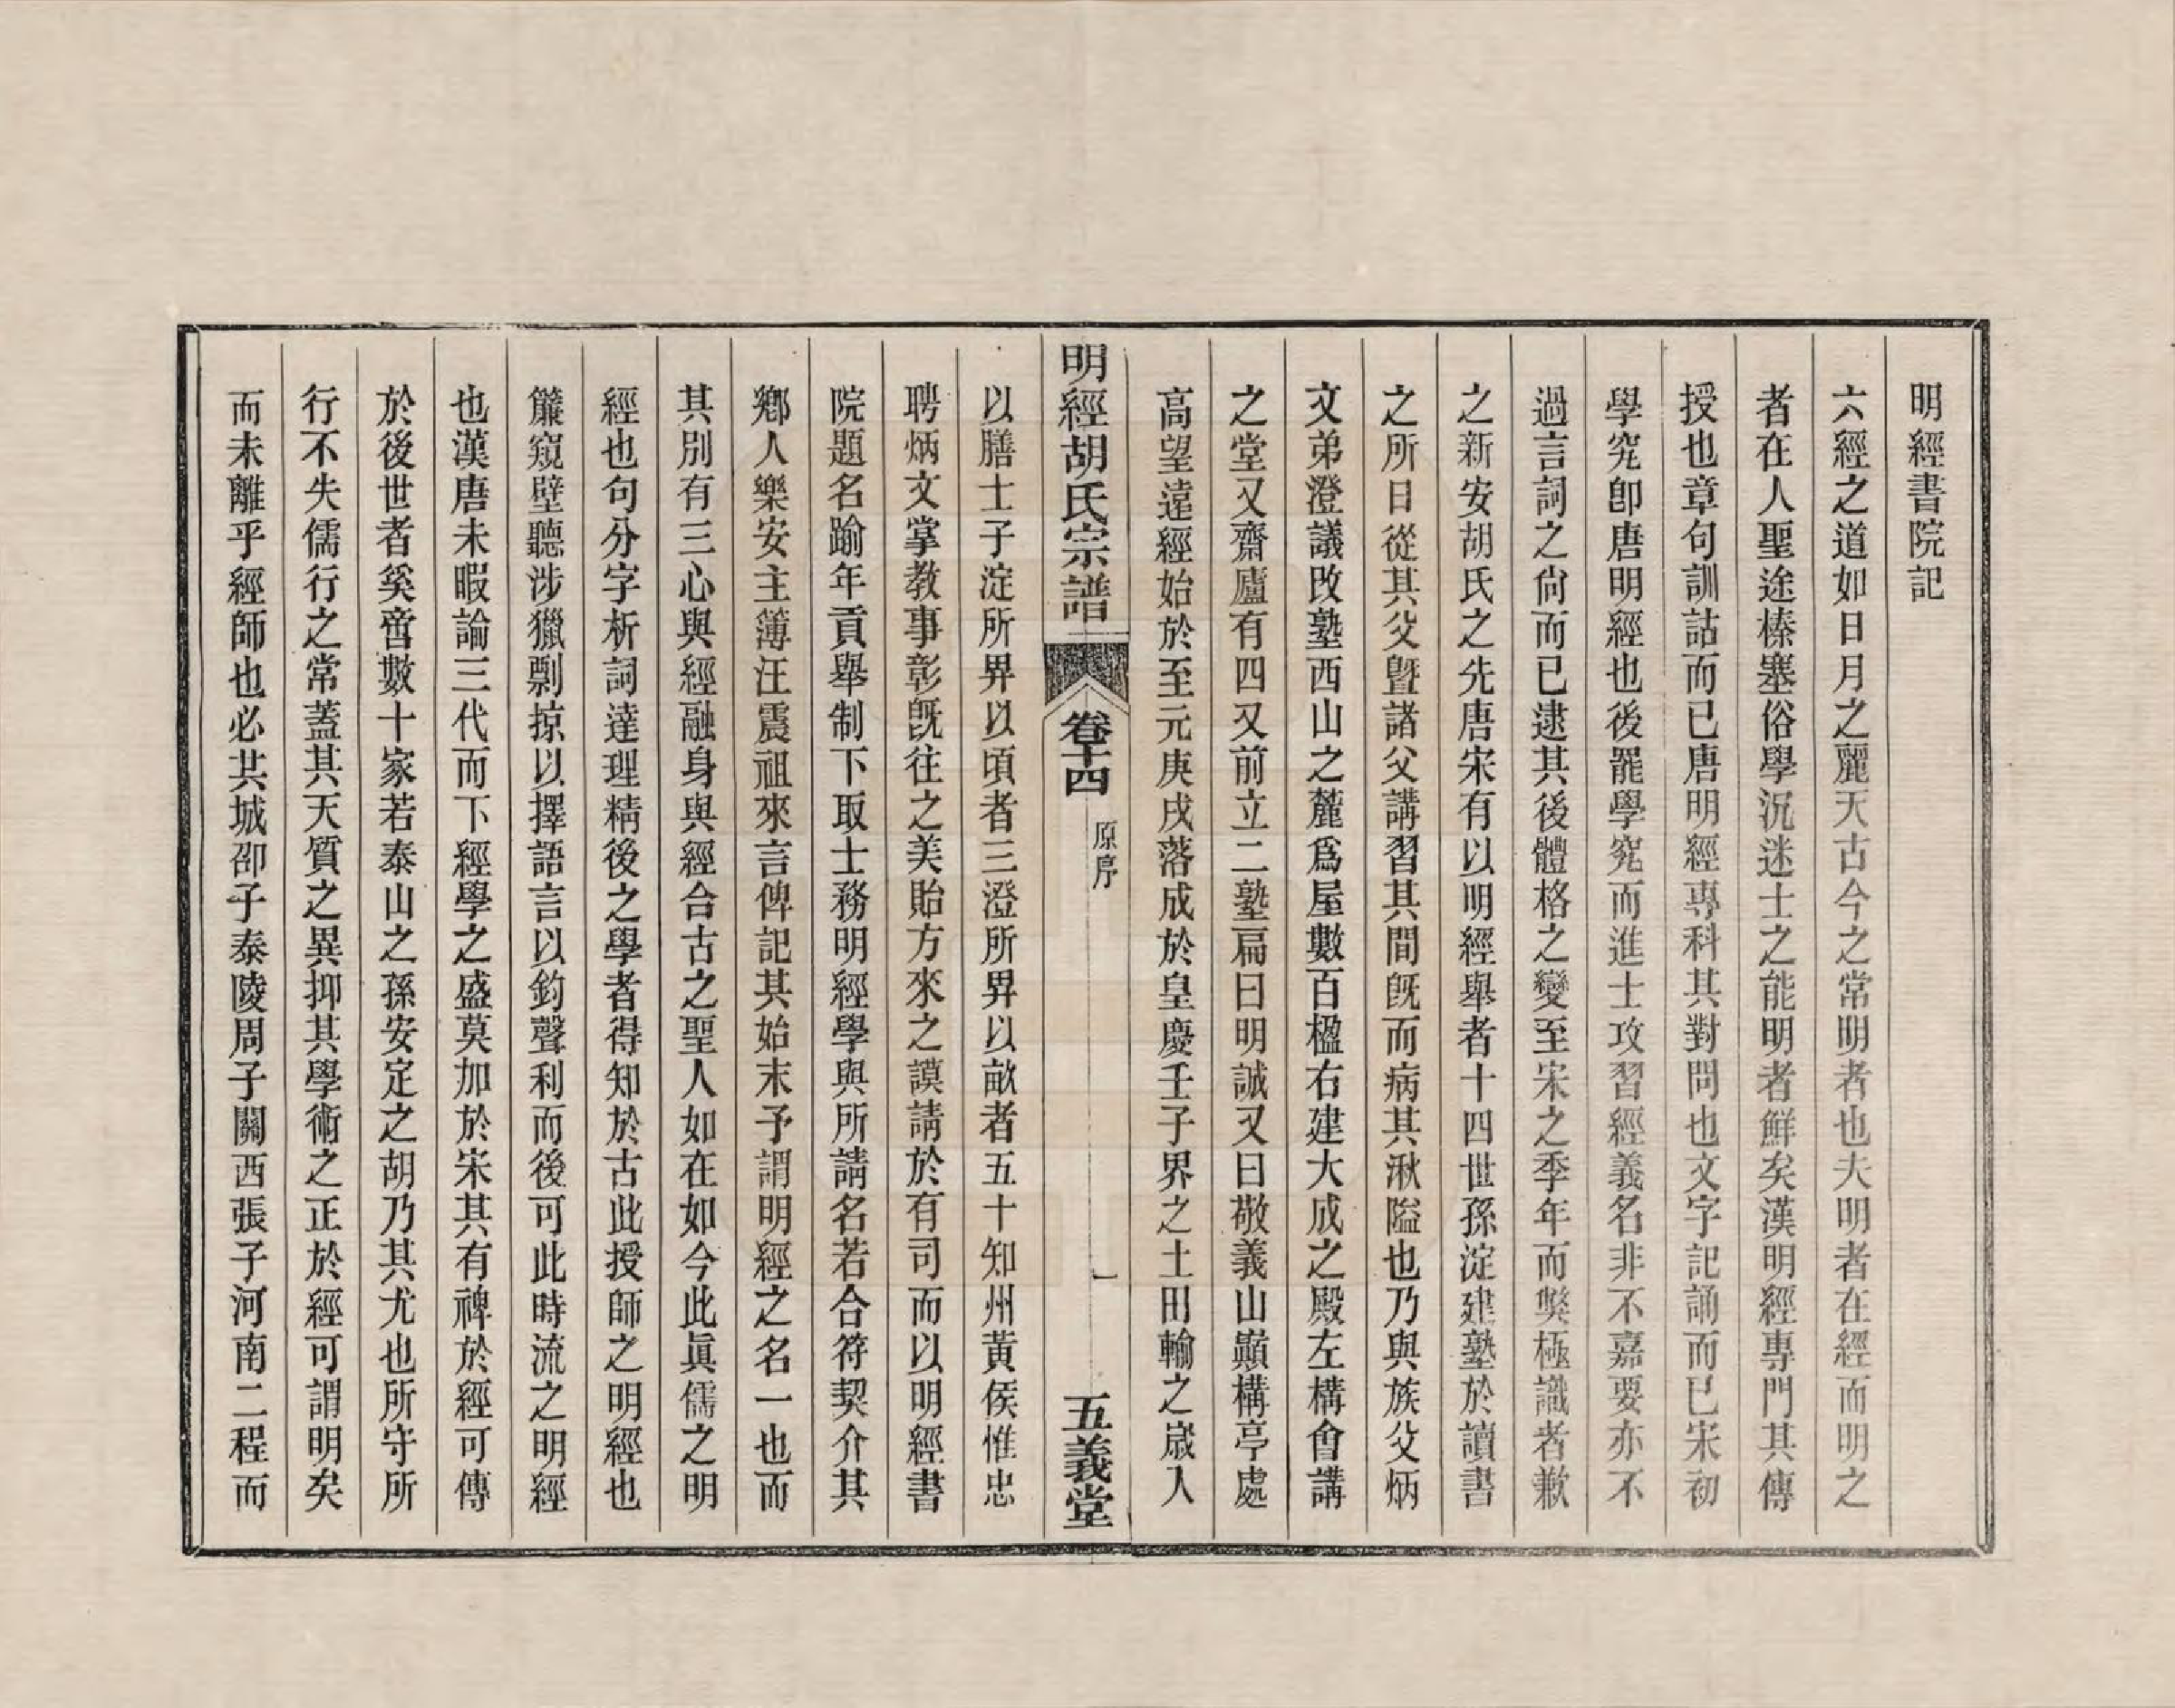 明經書院記
六經之道如日月之麗天古今之常明者也夫明者在經而明之
者在人聖途榛塞俗學沉迷士之能明者鮮矣漢明經專門其傳
授也章句訓詁而已唐明經專科其對問也文字記誦而已宋初
學究卽唐明經也後罷學究而進士攻習經義名非不嘉要亦不
過言詞之尙而已逮其後體格之變至宋之季年而獘極識者歉
之新安胡氏之先唐宋有以明經舉者十四世孫淀建塾於讀書
之所日從其父曁諸父講習其間旣而病其湫隘也乃與族父炳
文弟澄議改塾西山之麓爲屋數百楹右建大成之殿左構會講
之堂又齋廬有四又前立二塾扁曰明誠又曰敬義山巔構亭處
高望遠經始於至元庚戌落成於皇慶壬子界之土田輸之歲入
明經胡氏宗譜 卷十四 原序 一 五義堂
以膳士子淀所畀以頃者三澄所畀以畝者五十知州黃侯惟忠
聘炳文掌教事彰旣往之美貽方來之謨請於有司而以明經書
院題名踰年貢舉制下取士務明經學與所請名若合符契介其
鄕人樂安主簿汪震祖來言俾記其始末予謂明經之名一也而
其別有三心與經融身與經合古之聖人如在如今此眞儒之明
經也句分字析詞達理精後之學者得知於古此授師之明經也
簾窺壁聽涉獵剽掠以擇語言以鈞聲利而後可此時流之明經
也漢唐未暇論三代而下經學之盛莫加於宋其有裨於經可傳
於後世者奚啻數十家若泰山之孫安定之胡乃其尤也所守所
行不失儒行之常蓋其天質之異抑其學術之正於經可謂明矣
而未離乎經師也必共城邵子泰陵周子關西張子河南二程而